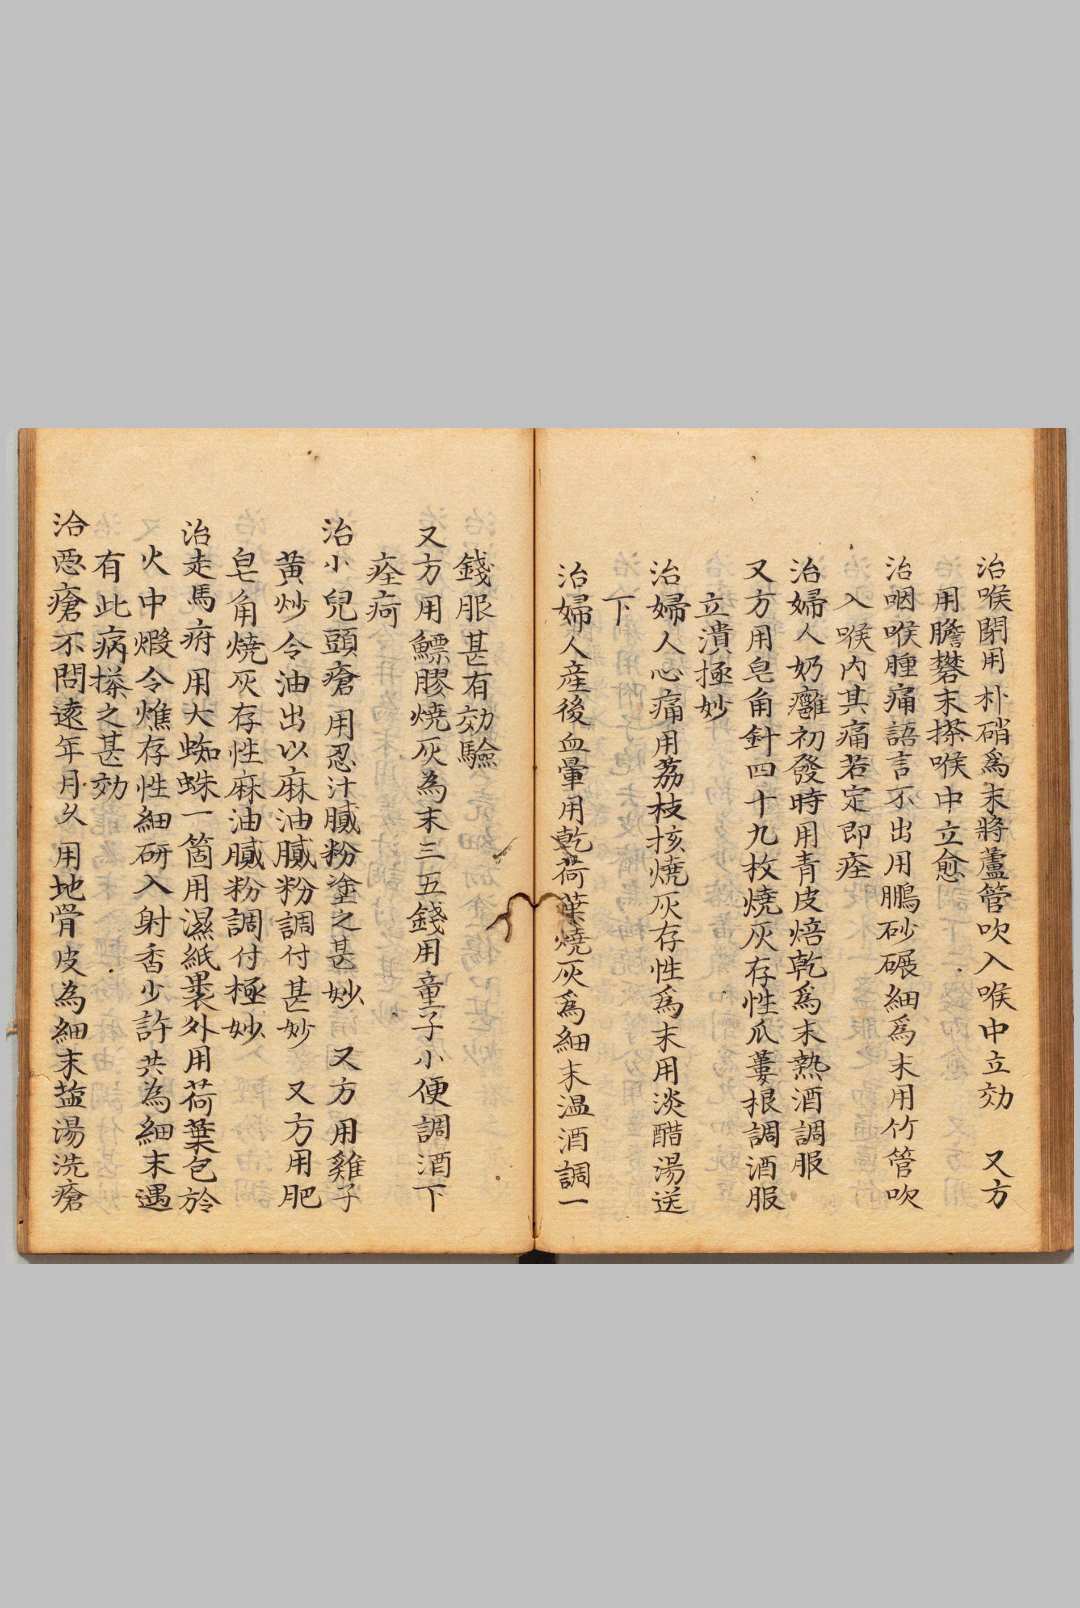 治喉閉用朴硝為末將蘆管吹入喉中立効　又方
用膽礬末搽喉中立愈
治咽喉腫痛語言不出用鵬砂碾細為末用竹管吹
入喉內其痛若定即痊
治婦人奶癰初發時用青皮焙乾為末熱酒調服
又方用皂角針四十九枚燒灰存性瓜蔞根調酒服
立潰極妙
治婦人心痛用荔枝核燒灰存性為末用淡醋湯送
下
治婦人産後血暈用乾荷葉燒灰為細末温酒調一
錢服甚有効驗
又方用鰾膠燒灰為末三五錢用童子小便調酒下
痊疴
治小兒頭瘡用忍汁膩粉塗之甚妙　又方用雞子
黃炒令油出以麻油膩粉調付甚妙　又方用肥
皂角燒灰存性麻油膩粉調付極妙
治走馬疳用大蜘蛛一箇用濕紙裹外用荷葉包於
火中煅令燋存性細研入射香少許共為細末遇
有此病搽之甚効
治悪瘡不問遠年月久用地骨皮為細末盐湯洗瘡